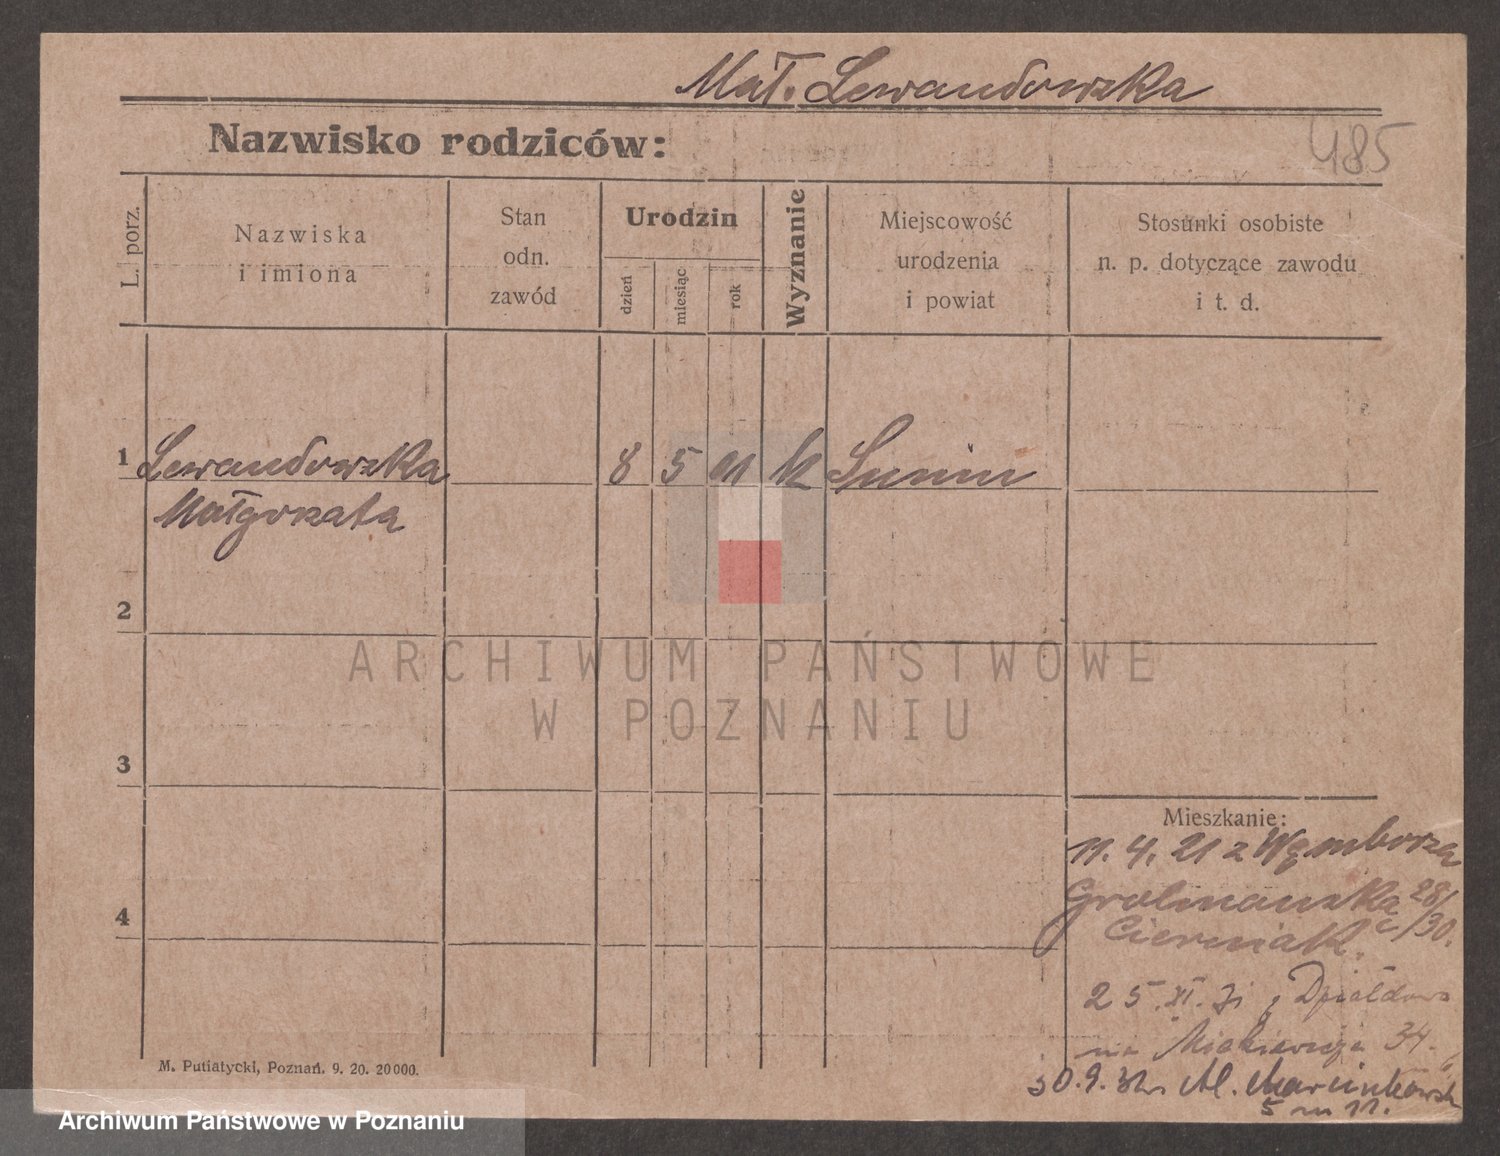 Mał. Lewandowska
Nazwisko rodziców:
485
L. porz.
Nazwiska
i imiona
Stan
odn.
zawód
Urodzin
dzień
miesiąc
rok
Wyznanie
Miejscowość
urodzenia
i powiat
Stosunki osobiste
n. p. dotyczące zawodu
i t. d.
1 Lewandowska 8 5 01 k
Małgorzata
2
3
4
Mieszkanie:
11. 4. 21 z
Grolmanska 28/30.
Cierniak
25. XI. 31 z Działdowa
na Mickiewicza 34.
30. 9. 32 Al. Marcinkowsk
5 m 11.
M. Putiatycki, Poznań. 9. 20. 20000.
ARCHIWUM PAŃSTWOWE
W POZNANIU
Archiwum Państwowe w Poznaniu